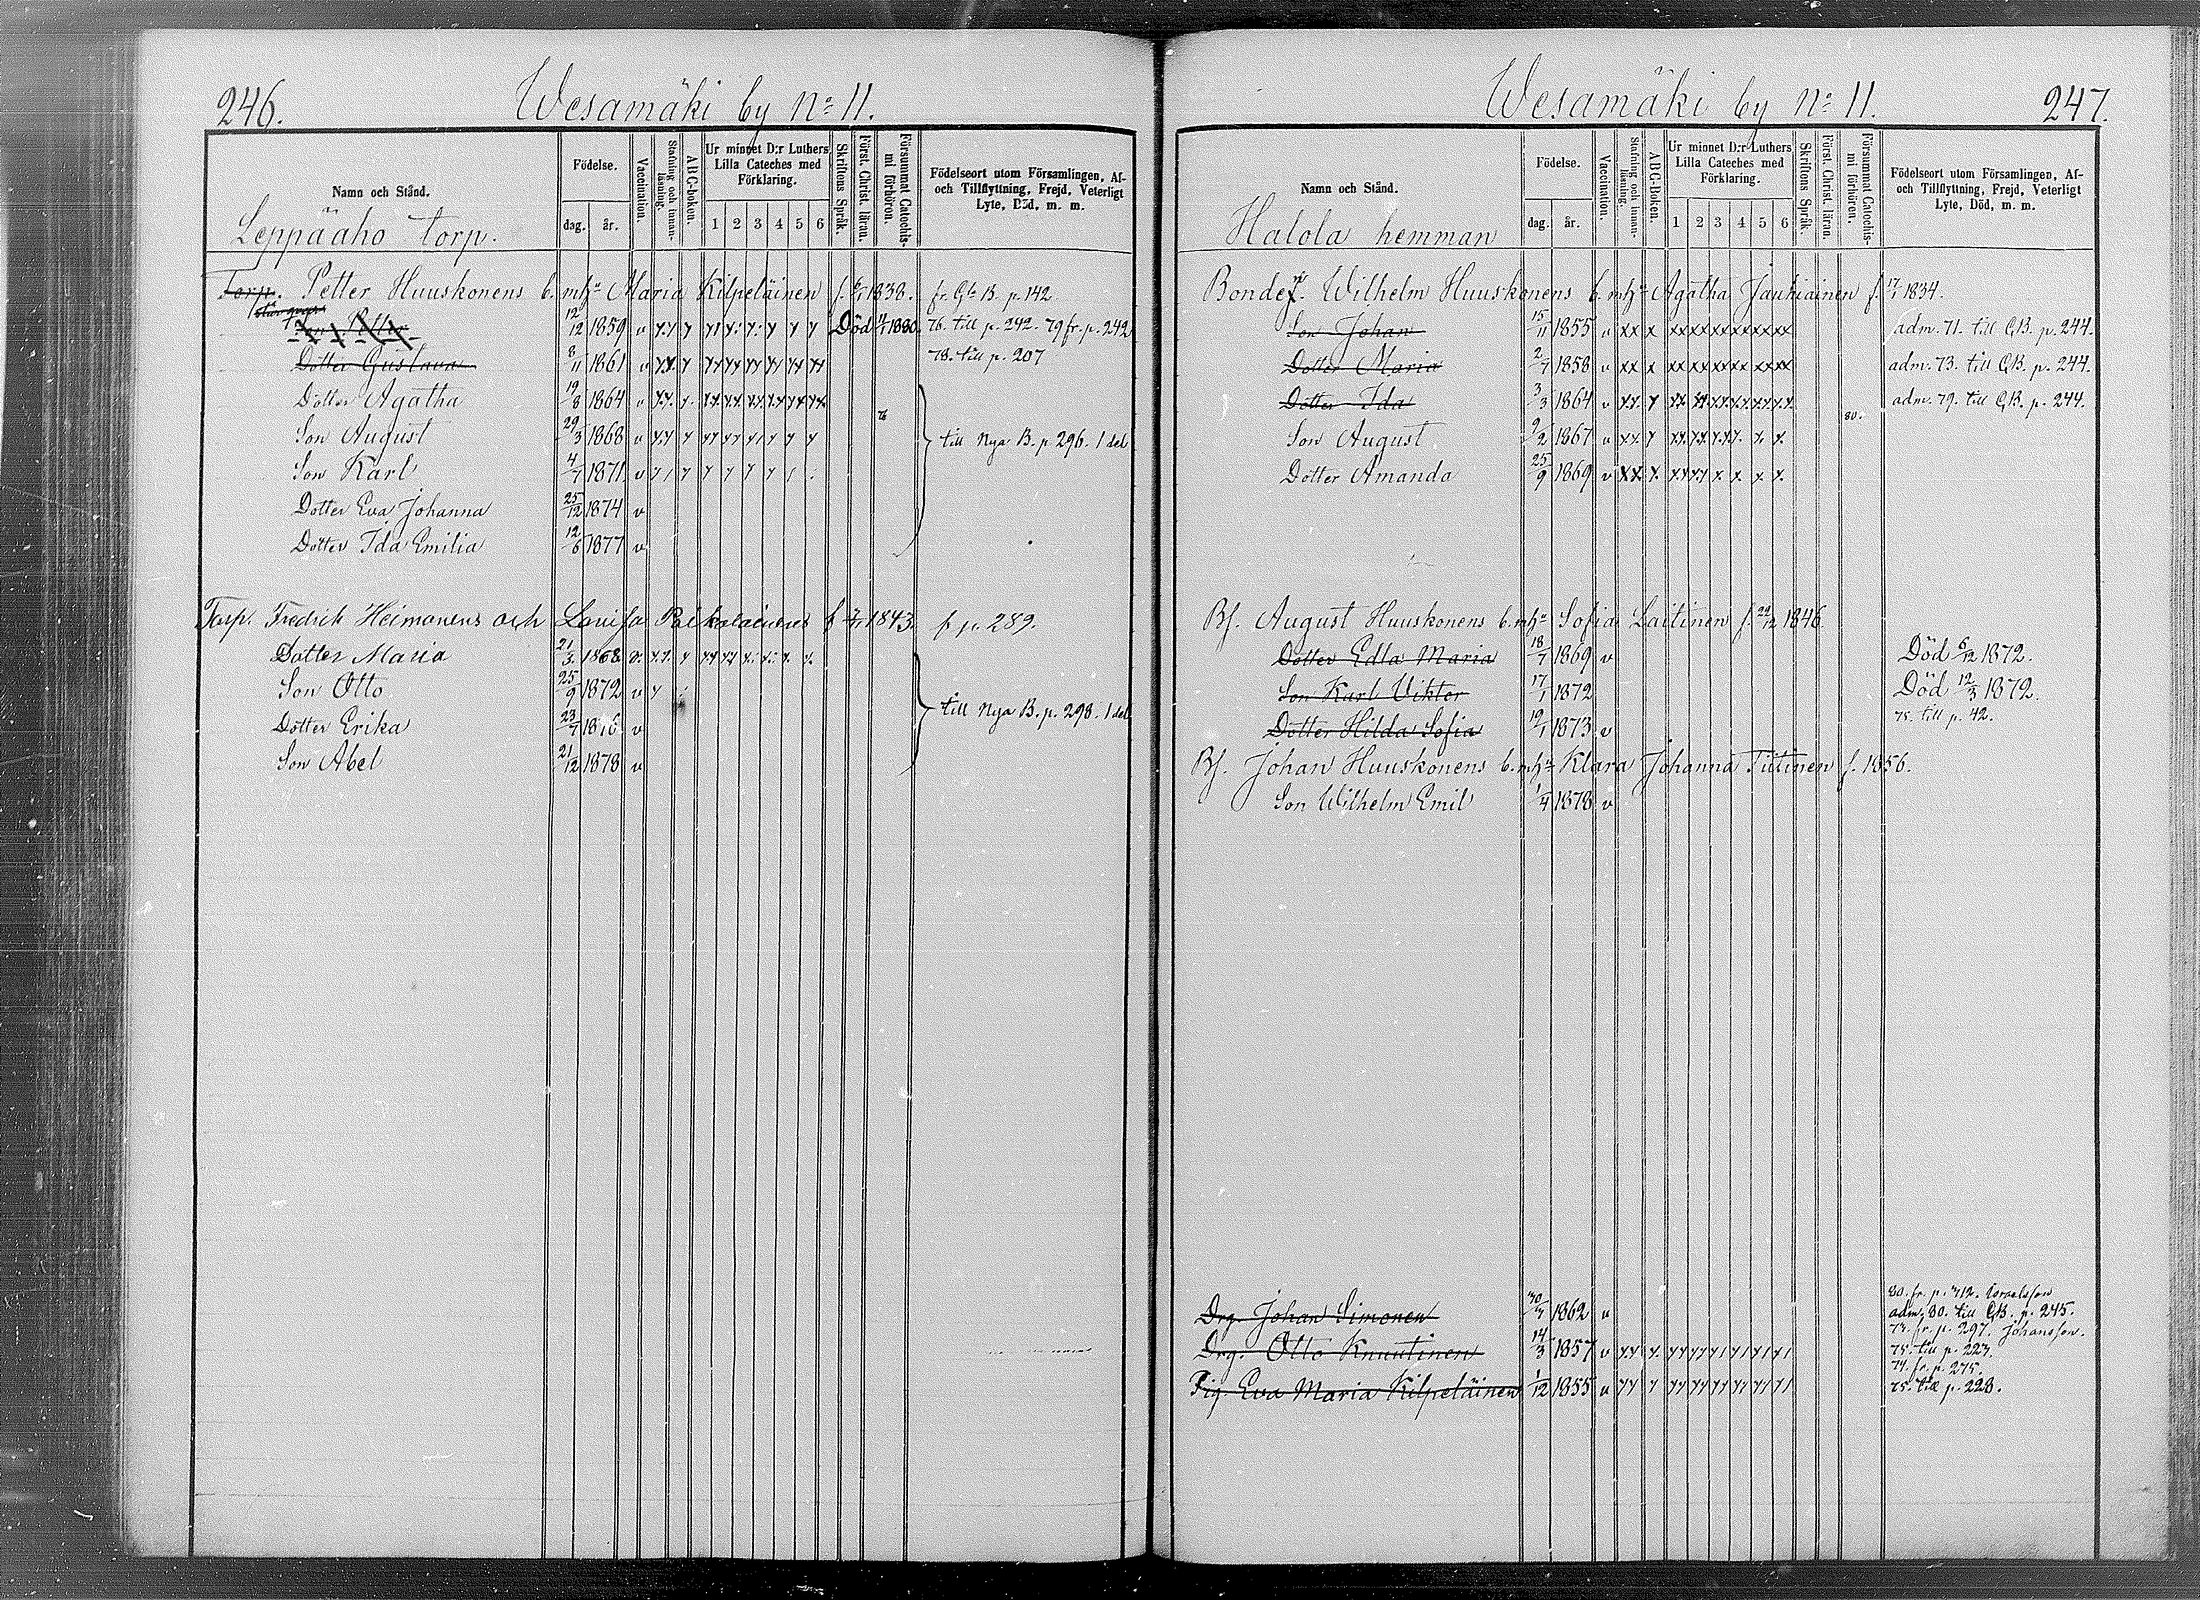 246.
Wesamäki by No 11.
Namn och Stånd.
Födelse.
dag.
år.
Vaccination.
Stafning och innanläsning.
ABC-boken.
Ur minnet D:r Luthers Lilla Cateches med Förklaring.
1 2 3 4 5 6
Skriftens Språk.
Först. Christ. läran.
Försummat Catechismi förhören.
Födelseort utom Församlingen, Af- och Tillflyttning, Frejd, Veterligt Lyte, Död, m. m.
Leppäaho torp.
Torp. Petter Huuskonens b. m. hu Maria Kilpeläinen f. 1838. fr. Gb B. p. 142
Son Petter 12/12 1859 v Död 1880. 76. till p. 242. 79 fr. p. 242
Dotter Gustava 8/11 1861 v 78. till p. 207
Dotter Agatha 19/8 1864 v
Son August 29/3 1868 v till Nya B. p 296. 1 del
Son Karl 4/7 1871 v
Dotter Eva Johanna 25/12 1874 v
Dotter Ida Emilia 12/6 1877 v
Torp. Fredrik Heimonens och Lovisa f 1843. f p. 289.
Dotter Maria 21/3 1868 v.
Son Otto 25/9 1872 v
Dotter Erika 23/7 1876 v till Nya B. p. 298. 1 del
Son Abel 21/12 1878 v
Wesamäki by No 11.
247.
Namn och Stånd.
Födelse.
dag.
år.
Vaccination.
Stafning och innanläsning.
ABC-Boken.
Ur minnet D:r Luthers Lilla Cateches med Förklaring.
1 2 3 4 5 6
Skriftens Språk.
Först. Christ. läran.
Försummat Catechismi förhören.
Födelseort utom Församlingen, Af- och Tillflyttning, Frejd, Veterligt Lyte, Död, m. m.
Halola hemman
Wilhelm Huuskonens b. m. hu Agatha Jauhiainen f. 17/1 1834.
Son Johan 15/11 1855 v adm. 71. till GB. p. 244.
Dotter Maria 2/7 1858 v adm. 73. till GB. p. 244.
Dotter Ida 3/3 1864 v adm. 79. till GB. p. 244.
80.
Son August 9/2 1867 v
Dotter Amanda 25/9 1869 v
Bf. August Huuskonens b. m. hu Sofia Laitinen f. 22/12 1846
Dotter Edla Maria 18/7 1869 v Död 6/12 1872.
Son Karl Viktor 17/1 1872 Död 12/3 1872.
Dotter Hilda Sofia 19/1 1873 v 75. till p. 42.
Bf. Johan Huuskonens b. m. hu Klara Johanna Tiitinen f. 1856.
Son Wilhelm Emil 1/4 1878 v
80. fr. p. 712.
Drg. Johan Simonen 1862 v adm. 80. till GB. p. 245.
fr. p. 297. Johansson.
Drg. Otto Knuutinen 14/3 1857 v 75. till p. 227.
fr. p. 275.
Pig. Eva Maria Kilpeläinen 1/12 1855 v 75. till p. 228.